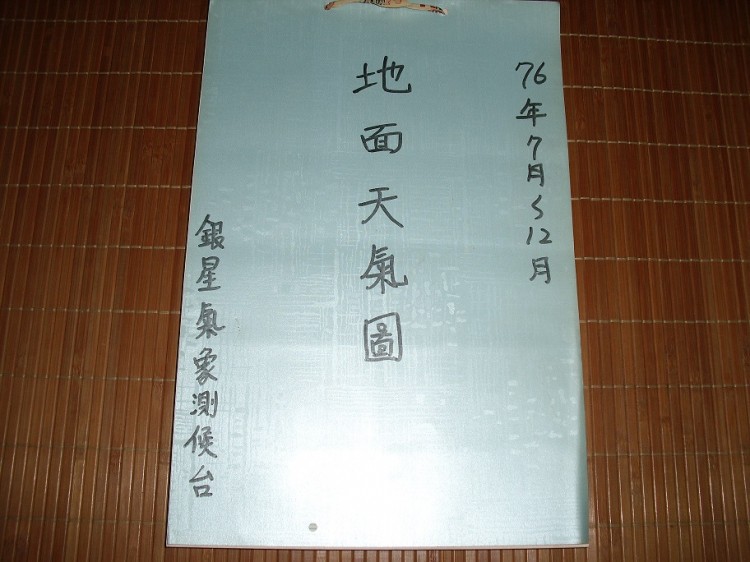 76年7月~12月
地面天氣圖
銀星氣象測候台